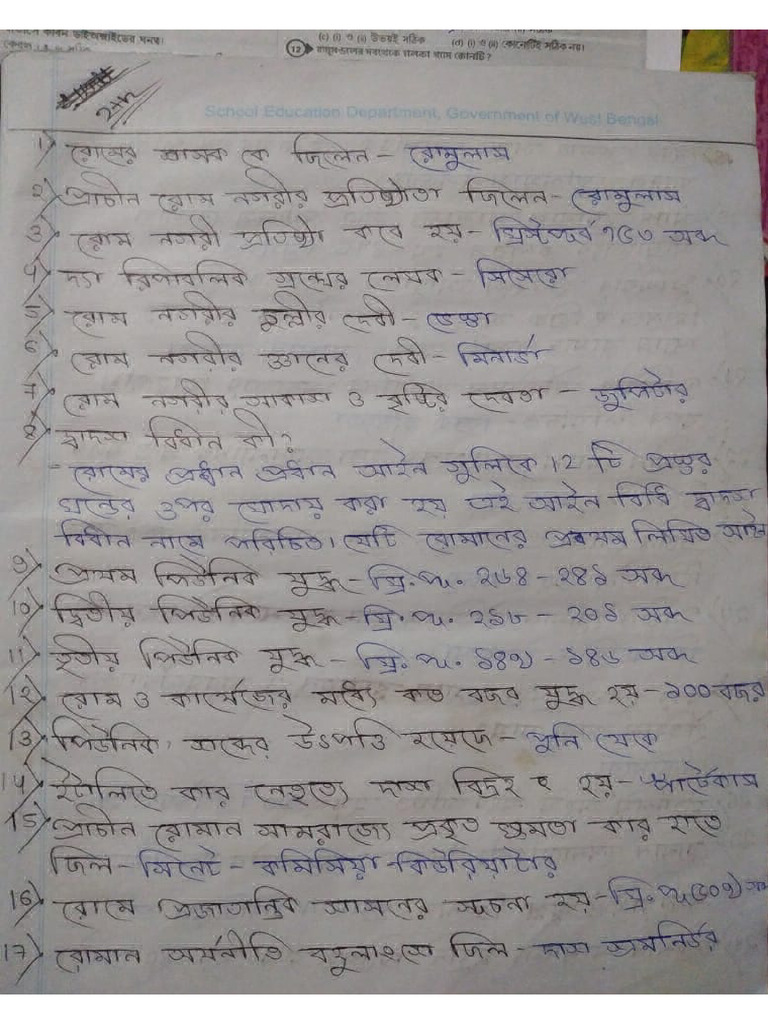 (c) (i) ও (ii) উভয়ই সঠিক
(d) (i) ও (ii) কোনোটিই সঠিক নয়।
12
2th
School Education Department, Government of West Bengal
1) রোমের শাসক কে ছিলেন - রোমুলাস
2) প্রাচীন রোম নগরীর প্রতিষ্ঠাতা ছিলেন - রোমুলাস
3) রোম নগরী প্রতিষ্ঠা কবে হয় - খ্রিস্টপূর্ব ৭৫৩ অব্দ
4) দ্যা রিপাবলিক গ্রন্থের লেখক - সিসেরো
5) রোম নগরীর চুল্লীর দেবী - ভেস্তা
6) রোম নগরীর জ্ঞানের দেবী - মিনার্ভা
7) রোম নগরীর আকাশ ও বৃষ্টির দেবতা - জুপিটার
8) দ্বাদশ বিধান কী?
- রোমের প্রধান প্রধান আইন গুলিকে 12 টি প্রস্তর
খন্ডের ওপর খোদায় করা হয় এই আইন বিধি দ্বাদশ
বিধান নামে পরিচিত। যেটি রোমানের প্রথম লিখিত আইন
9) প্রথম পিউনিক যুদ্ধ - খ্রি. পূ. ২৬৪ - ২৪১ অব্দ
10) দ্বিতীয় পিউনিক যুদ্ধ - খ্রি. পূ. ২১৮ - ২০১ অব্দ
11) তৃতীয় পিউনিক যুদ্ধ - খ্রি. পূ. ১৪৯ - ১৪৬ অব্দ
12) রোম ও কার্থেজের মধ্যে কত বছর যুদ্ধ হয় - ১০০ বছর
13) পিউনিক, শব্দের উৎপত্তি হয়েছে - পুনি থেকে
14) ইটালিতে কার নেতৃত্বে দাস বিদ্রহ হয় - স্পার্টকাস
15) প্রাচীন রোমান সামরাজ্যে প্রকৃত ক্ষমতা কার হাতে
ছিল - সিনেট - কমিসিয়া - কিউরিয়াটার
16) রোমে প্রজাতান্ত্রিক শাসনের সূচনা হয় - খ্রি. পূ (৫০৯) অব্দ
17) রোমান অর্থনীতি বহুলাংশে ছিল - দাস শ্রমনির্ভর